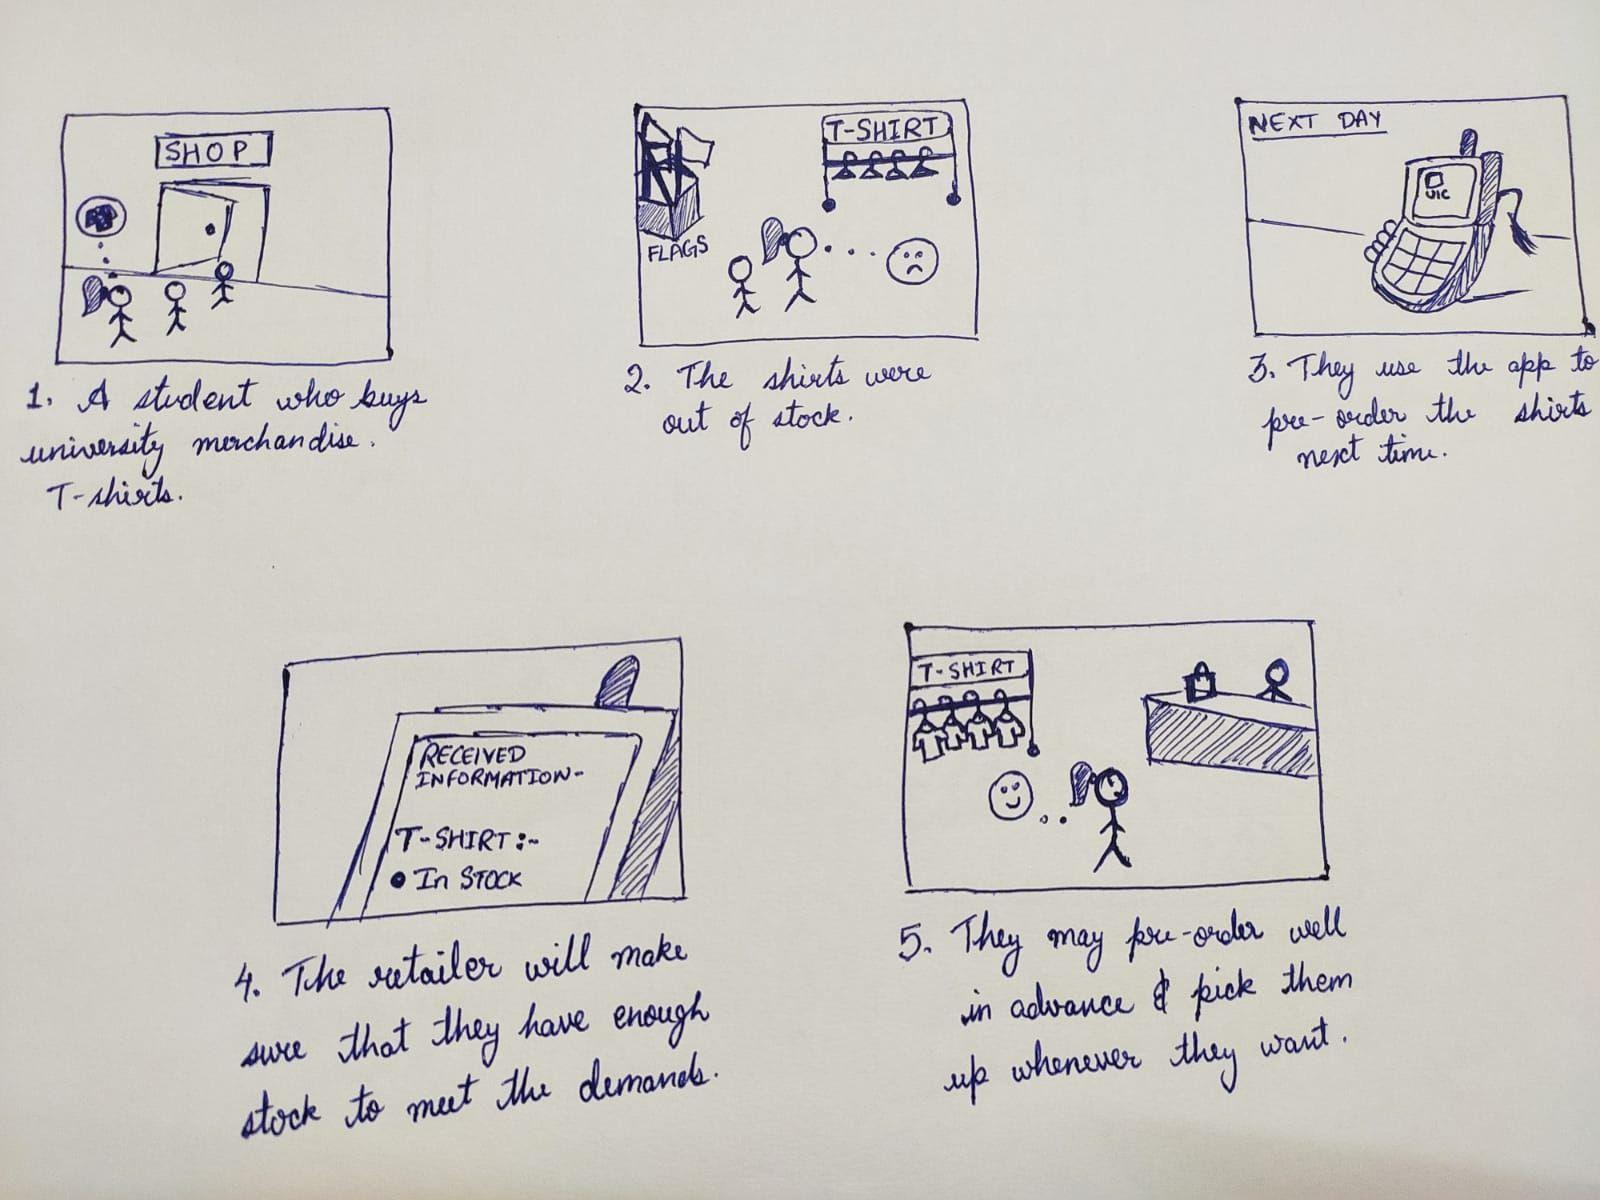 SHOP
1. A student who buys
university merchandise.
T-shirts.
T-SHIRT
FLAGS
2. The shirts were
out of stock.
NEXT DAY
UIC
3. They use the app to
pre-order the shirts
next time.
RECEIVED
INFORMATION-
T-SHIRT:-
• In STOCK
4. The retailer will make
sure that they have enough
stock to meet the demands.
T-SHIRT
5. They may pre-order well
in advance & pick them
up whenever they want.